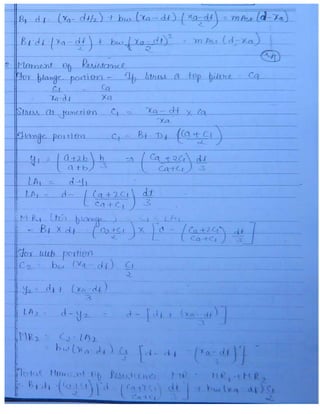 Bf df (xa - df/2) + bw (xa - df) (xa - df)/2 = mAsc (d - xa)
Bf df (xa - df/2) + bw (xa - df)²/2 = mAsc (d - xa)
Moment of Resistance
For flange portion - If stress a top fibre = Ca
C1/(xa-df) = Ca/xa
Stress at junction C1 = (xa - df)/xa × Ca
Flange portion C1 = Bf Df ((Ca + C1)/2)
y1 = ((a+2b)/(a+b)) h/3 ⇒ ((Ca + 2C1)/(Ca+C1)) df/3
LA1 = d-y1
LA1 = d- ((Ca+2C1)/(Ca+C1)) df/3
MR1 (for flange) = C1 × LA1
= Bf × df × ((Ca+C1)/2) × [d - ((Ca+2C1)/(Ca+C1)) df/3]
For web portion
C2 = bw (xa - df) C1/2
y2 = df + (xa-df)/3
LA2 = d-y2 = d-[df + (xa-df)/3]
MR2 = C2 × LA2
= bw(xa-df) C1/2 [d-df - (xa-df)/3]
Total Moment of Resistance MR = MR1+MR2
= Bf df ((Ca+C1)/2) [d - ((Ca+2C1)/(Ca+C1)) df/3] + bw(xa-df) C1/2